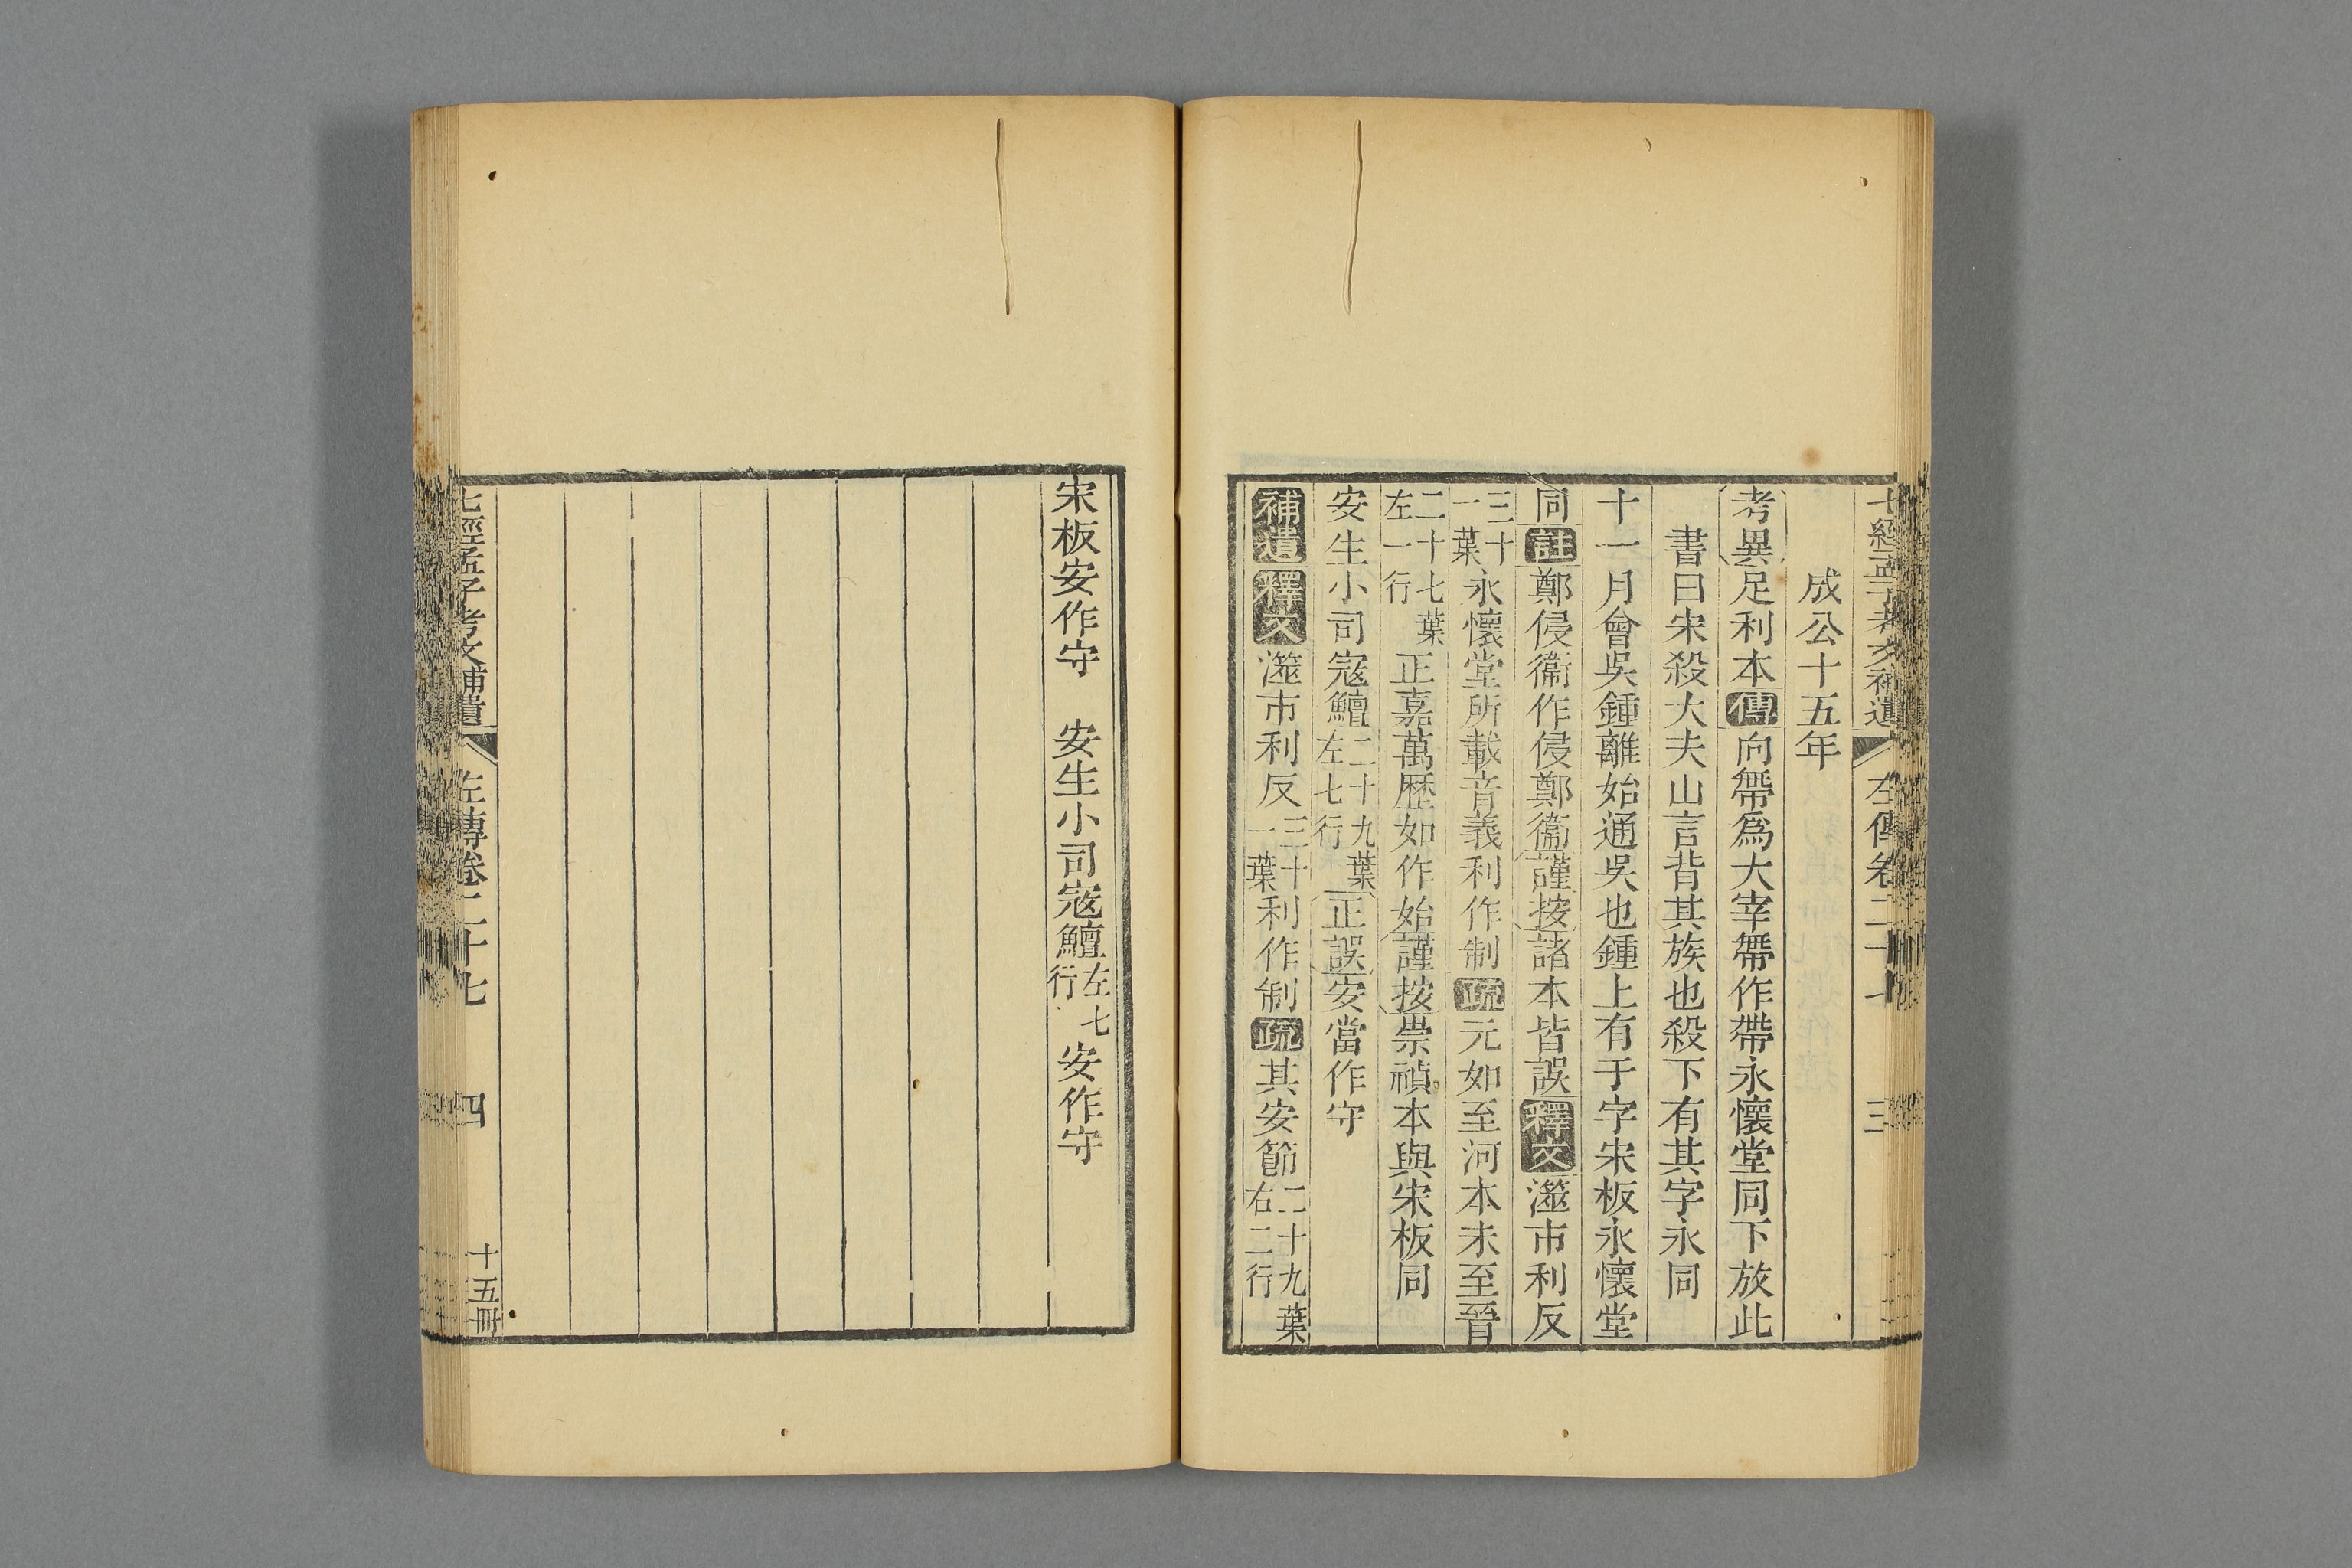 七經孟子考文補遺 左傳卷二十七 三
成公十五年
考異足利本傳向帶爲大宰帶作帶永懷堂同下放此
書曰宋殺大夫山言背其族也殺下有其字永同
十一月會吳鍾離始通吳也鍾上有于字宋板永懷堂
同註鄭侵衞作侵鄭衞謹按諸本皆誤釋文澨市利反
三十一葉永懷堂所載音義利作制疏元如至河本未至晉
二十七葉左一行正嘉萬歷如作始謹按崇禎本與宋板同
安生小司寇鱣二十九葉左七行正誤安當作守
補遺釋文澨市利反三十一葉利作制疏其安節二十九葉右二行
宋板安作守 安生小司寇鱣左七行安作守
七經孟子考文補遺 左傳卷二十七 四 十五冊